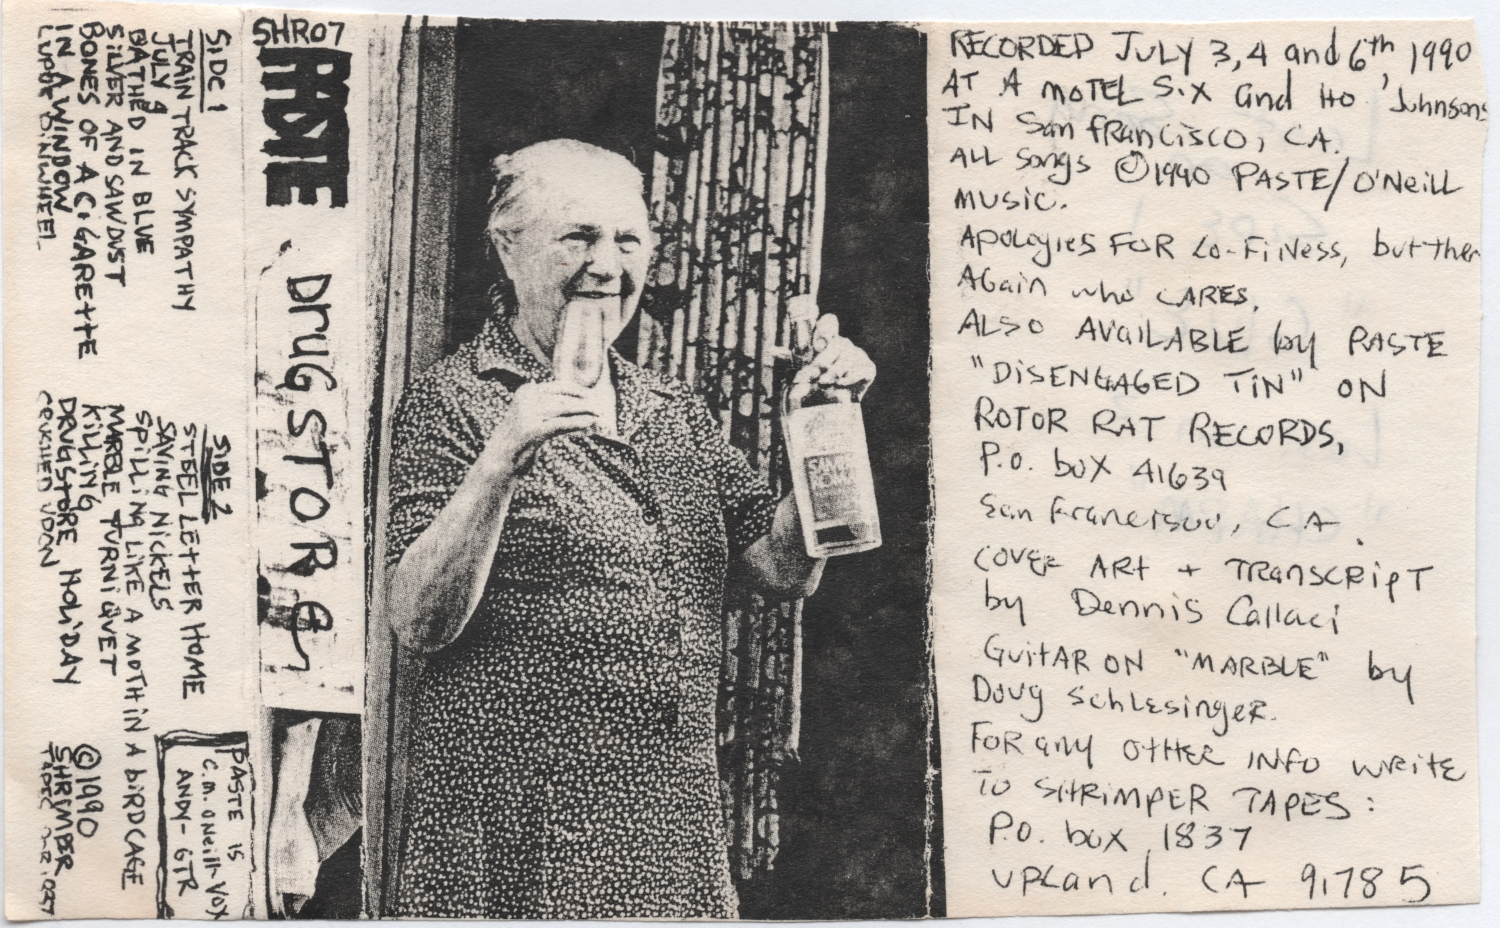 SIDE 1
TRAIN TRACK SYMPATHY
JULY 4
BATHED IN BLUE
SILVER AND SAWDUST
BONES OF A CIGARETTE
IN A WINDOW
LUPOF PINWHEEL
SIDE 2
STEEL LETTER HOME
SAVING NICKELS
SPILLING LIKE A MOTH IN A BIRDCAGE
MARBLE TURNIQUET
KILLING
DRUGSTORE HOLIDAY
CRUSHED UPON
©1990
SHRIMPER
TAPES
PASTE IS
C.M. ONeill-VOX
ANDY-GTR
SHR07
PASTE
DrUGSTORE
RECORDED JULY 3,4 and 6th, 1990
AT A MOTEL Six and Ho Johnsons
IN San FRANCISCO, CA.
ALL Songs ©1990 PASTE/O'Neill
MUSIC.
Apologies FOR Lo-FiNess, but then
AGain who CARES.
ALSO AVAILABLE by PASTE
"DISENGAGED TIN" ON
ROTOR RAT RECORDS,
P.O. box 41639
San Francisco, CA.
COVER ART + TRANSCRIPT
by Dennis Callaci
GUITAR ON "MARBLE" by
Doug Schlesinger.
FOR any OTHER INFO WRITE
TO SHRIMPER TAPES:
P.O. box 1837
UPLand. CA 91785